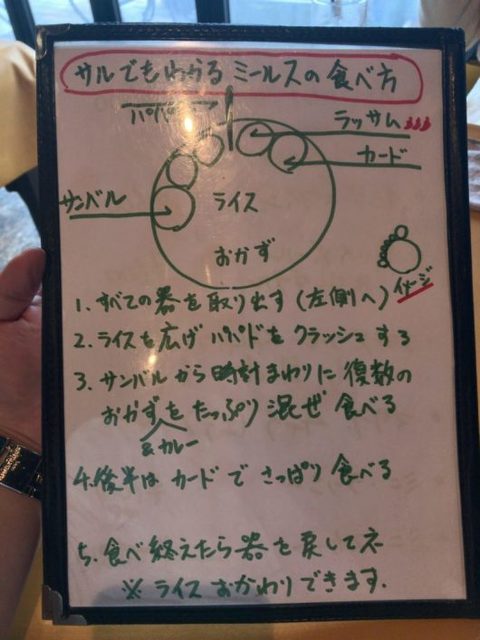 サルでもわかるミールスの食べ方
パパド
ラッサム
カード
サンバル
ライス
おかず
イメージ
1. すべての器を取り出す(左側へ)
2. ライスを広げパパドをクラッシュする
3. サンバルから時計まわりに複数の
おかずをたっぷり混ぜ食べる
&カレー
4. 後半はカードでさっぱり食べる
5. 食べ終えたら器を戻してネ
※ライスおかわりできます.